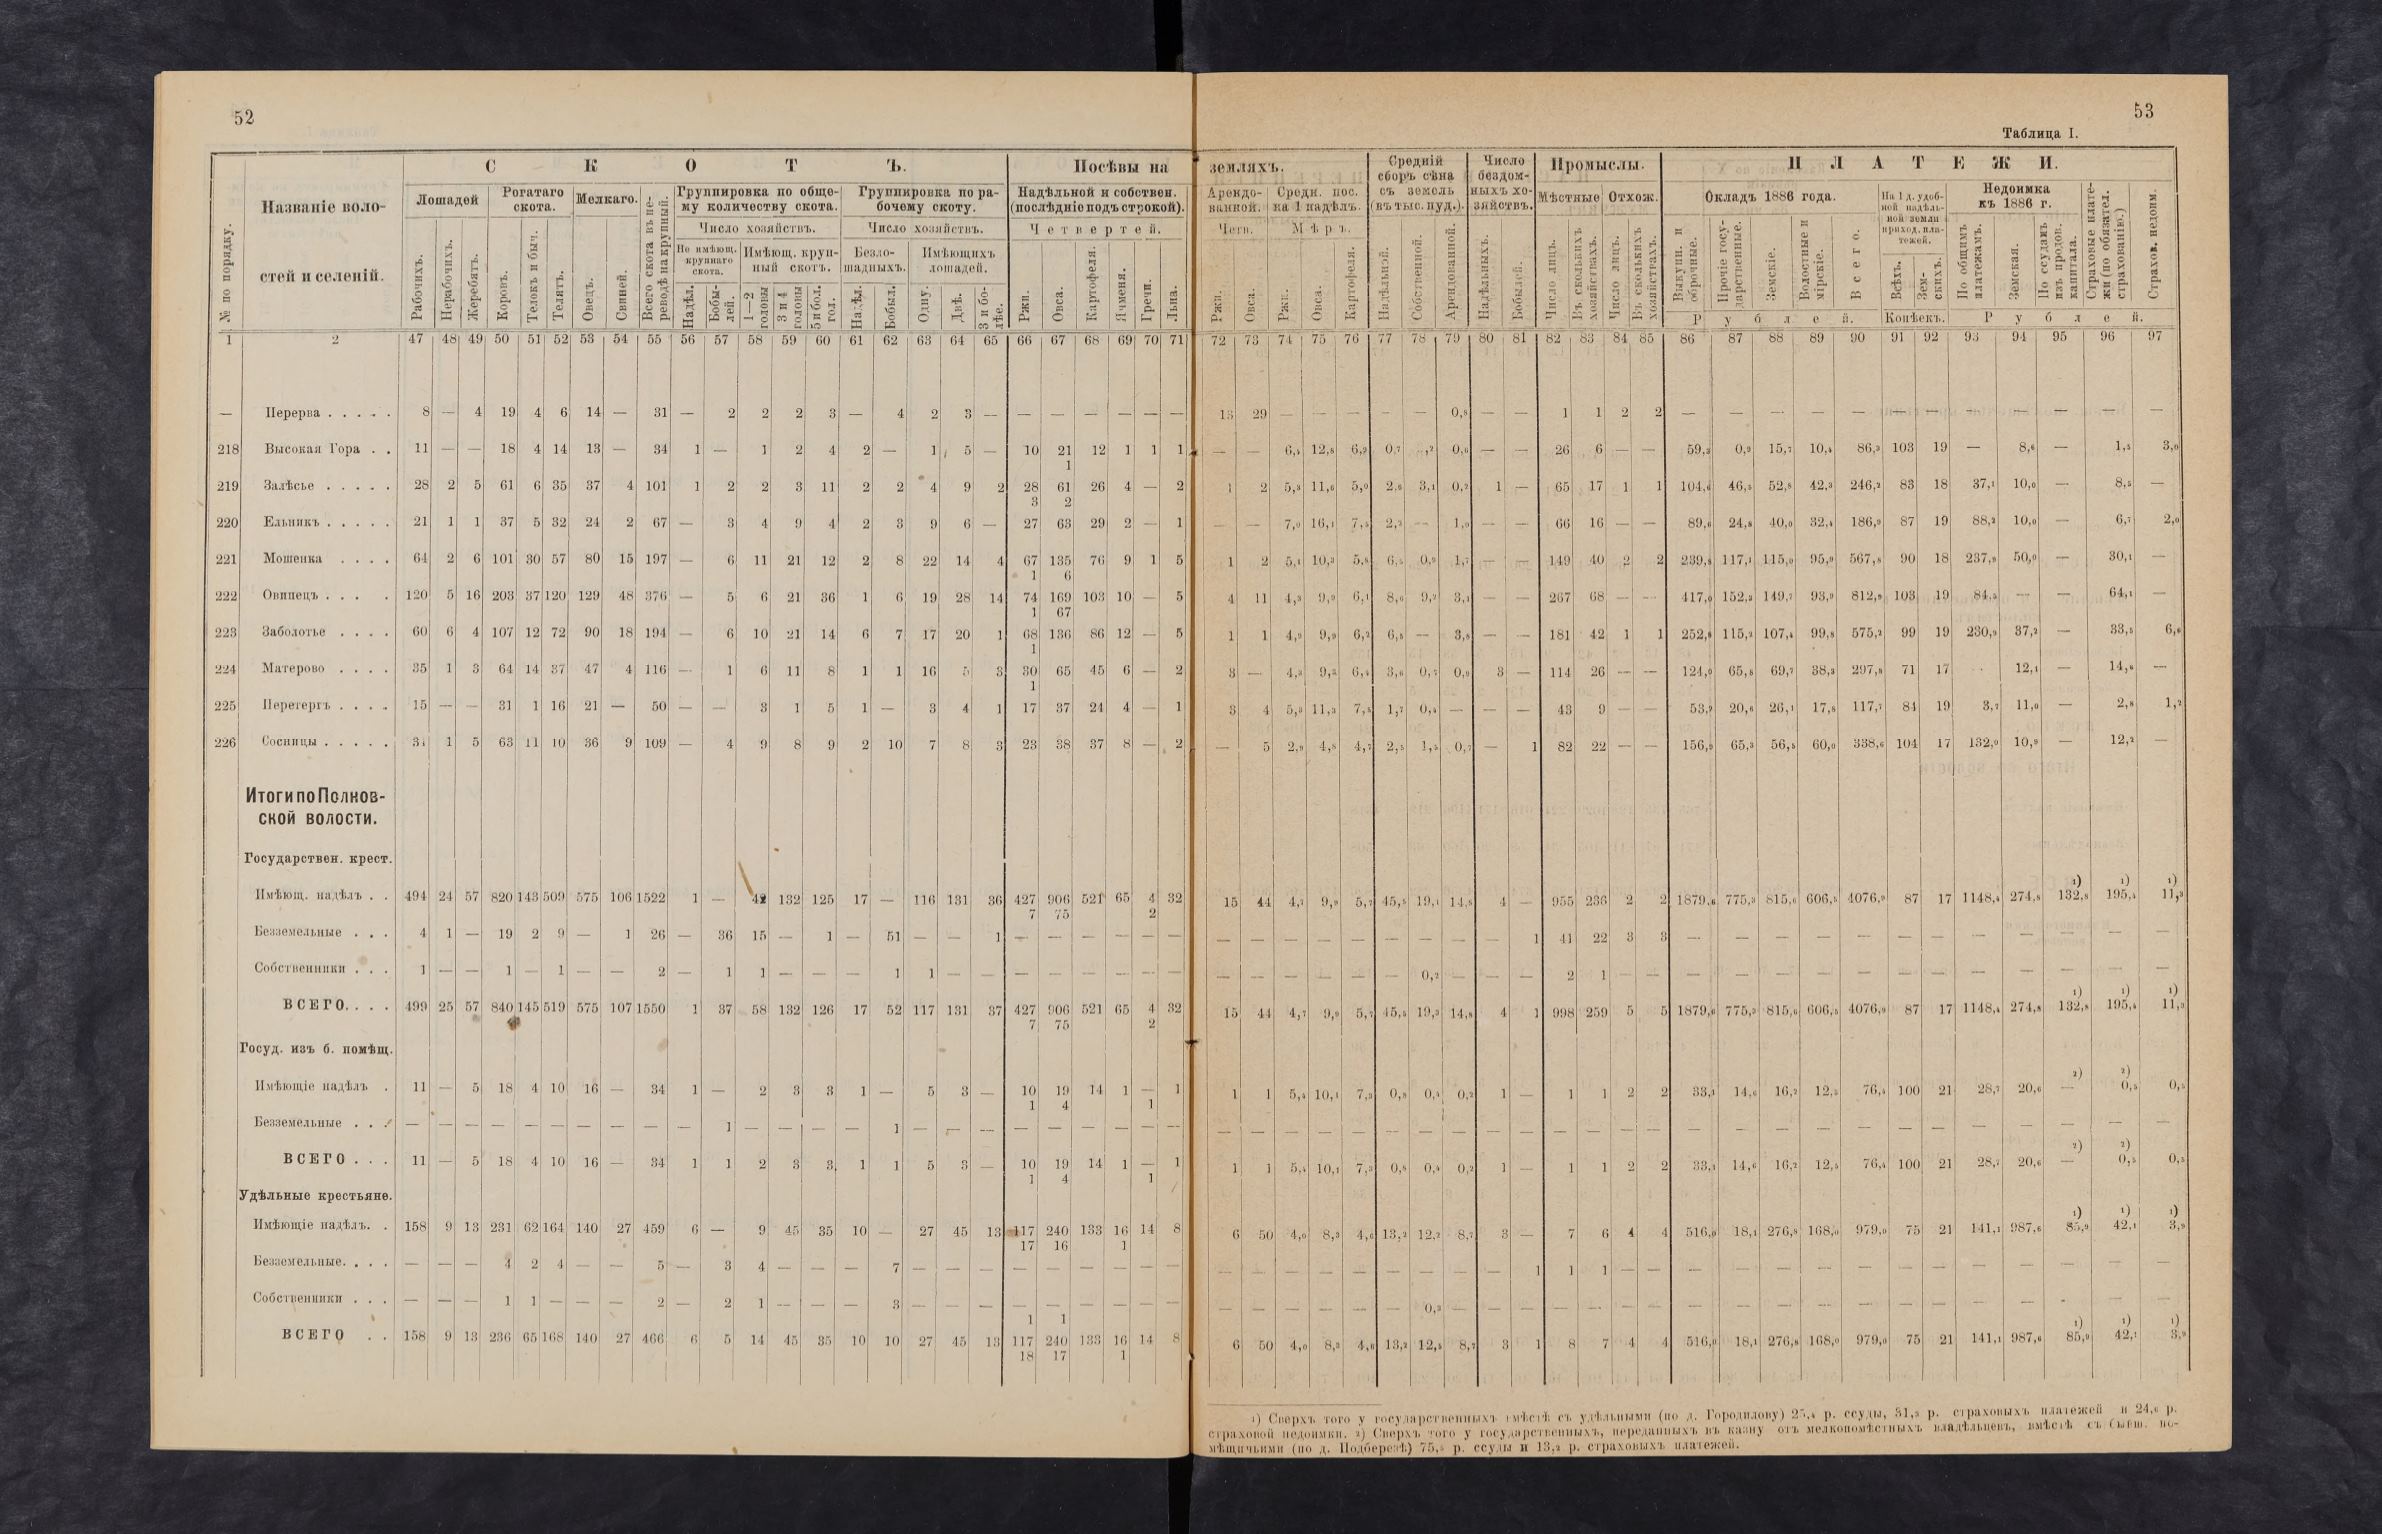 52
53
Таблица I.
С К О Т Ъ.
Посѣвы на земляхъ.
Средній сборъ сѣна съ земель (въ тыс. пуд.).
Число бездомныхъ хозяйствъ.
Промыслы.
П Л А Т Е Ж И.
№ по порядку.
Названіе волостей и селеній.
Лошадей
Рогатаго скота.
Мелкаго.
Всего скота въ переводѣ на крупный.
Группировка по общему количеству скота.
Группировка по рабочему скоту.
Надѣльной и собствен. (послѣдніе подъ строкой).
Арендованной.
Средн. пос. на 1 надѣлъ.
Мѣстные
Отхож.
Окладъ 1886 года.
На 1 д. удобной надѣльной земли приход. платежей.
Недоимка къ 1886 г.
Страховые платежи (по обязател. страхованію.)
Страхов. недоим.
Число хозяйствъ.
Число хозяйствъ.
Четвертей.
Четв.
Мѣръ.
Не имѣющ. крупнаго скота.
Имѣющ. крупный скотъ.
Безлошадныхъ.
Имѣющихъ лошадей.
Рабочихъ. Нерабочихъ. Жеребятъ. Коровъ. Телокъ и быч. Телятъ. Овецъ. Свиней. Надѣл. Бобылей. 1—2 головы 3 и 4 головы 5 и бол. гол. Надѣл. Бобыл. Одну. Двѣ. 3 и болѣе. Ржи. Овса. Картофеля. Ячменя. Гречи. Льна.
Ржи. Овса. Ржи. Овса. Картофеля. Надѣльной. Собственной. Арендованной. Надѣльныхъ. Бобылей. Число лицъ. Въ сколькихъ хозяйствахъ. Число лицъ. Въ сколькихъ хозяйствахъ. Выкупн. и оброчные. Прочіе государственные. Земскіе. Волостные и мірскіе. Всего. Всѣхъ. Земскихъ. По общимъ платежамъ. Земская. По ссудамъ изъ продов. капитала.
Рублей. Копѣекъ. Рублей.
1 2 47 48 49 50 51 52 53 54 55 56 57 58 59 60 61 62 63 64 65 66 67 68 69 70 71 72 73 74 75 76 77 78 79 80 81 82 83 84 85 86 87 88 89 90 91 92 93 94 95 96 97
— Перерва . . . . . 8 — 4 19 4 6 14 — 31 — 2 2 2 3 — 4 2 3 — — — — — — — 13 29 — — — — — 0,8 — — 1 1 2 2 — — — — — — — — — — — —
218 Высокая Гора . . 11 — — 18 4 14 13 — 34 1 — 1 2 4 2 — 1 5 — 10 21 12 1 1 1 — — 6,4 12,8 6,9 0,7 0,6 — — 26 6 — — 59,3 0,9 15,7 10,4 86,3 103 19 — 8,6 — 1,5 3,0
1
219 Залѣсье . . . . . 28 2 5 61 6 35 37 4 101 1 2 2 3 11 2 2 4 9 2 28 61 26 4 — 2 1 2 5,3 11,6 5,0 2,6 3,1 0,2 1 — 65 17 1 1 104,6 46,5 52,8 42,3 246,2 83 18 37,1 10,0 — 8,5 —
3 2
220 Ельникъ . . . . . 21 1 1 37 5 32 24 2 67 — 3 4 9 4 2 3 9 6 — 27 63 29 2 — 1 — — 7,0 16,1 7,5 2,3 — 1,0 — — 66 16 — — 89,6 24,8 40,0 32,4 186,9 87 19 88,2 10,0 — 6,7 2,0
221 Мошенка . . . . 64 2 6 101 30 57 80 15 197 — 6 11 21 12 2 8 22 14 4 67 135 76 9 1 5 1 2 5,1 10,3 5,8 6,5 0,9 1,7 — — 149 40 2 2 239,8 117,1 115,0 95,9 567,8 90 18 237,9 50,0 — 30,1 —
1 6
222 Овинецъ . . . . 120 5 16 203 37 120 129 48 376 — 5 6 21 36 1 6 19 28 14 74 169 103 10 — 5 4 11 4,3 9,9 6,1 8,6 9,2 3,1 — — 267 68 — — 417,0 152,3 149,7 93,9 812,9 103 19 84,5 — — 64,1 —
1 67
223 Заболотье . . . . 60 6 4 107 12 72 90 18 194 — 6 10 21 14 6 7 17 20 1 68 136 86 12 — 5 1 1 4,9 9,9 6,2 6,5 — 3,8 — — 181 42 1 1 252,8 115,2 107,4 99,8 575,2 99 19 230,9 37,2 — 33,5 6,6
1
224 Матерово . . . . 35 1 3 64 14 37 47 4 116 — 1 6 11 8 1 1 16 5 3 30 65 45 6 — 2 3 — 4,3 9,3 6,4 3,6 0,7 0,9 3 — 114 26 — — 124,0 65,8 69,7 38,3 297,8 71 17 12,1 — 14,6 —
1
225 Перетергъ . . . . 15 — — 31 1 16 21 — 50 — — 3 1 5 1 — 3 4 1 17 37 24 4 — 1 3 4 5,3 11,3 7,5 1,7 0,4 — — — 43 9 — — 53,2 20,6 26,1 17,8 117,7 84 19 3,7 11,0 — 2,8 1,2
226 Сосницы . . . . . 31 1 5 63 11 10 36 9 109 — 4 9 8 9 2 10 7 8 3 23 38 37 8 — 2 — 5 2,9 4,8 4,7 2,5 1,5 0,7 — 1 82 22 — — 156,9 65,3 56,5 60,0 338,6 104 17 132,0 10,9 — 12,2 —
Итоги по Полновской волости.
Государствен. крест.
Имѣющ. надѣлъ . . 494 24 57 820 143 509 575 106 1522 1 — 42 132 125 17 — 116 131 36 427 906 521 65 4 32 15 44 4,7 9,9 5,7 45,5 19,1 14,8 4 — 955 236 2 2 1879,6 775,3 815,6 606,5 4076,9 87 17 1148,4 274,8 ¹) 132,8 ¹) 195,4 ¹) 11,3
7 75 2
Безземельные . . . 4 1 — 19 2 9 — 1 26 — 36 15 — 1 — 51 — — 1 — — — — — — — — — — — — — — — 1 41 22 3 3 — — — — — — — — — — — —
Собственники . . . 1 — — 1 — 1 — — 2 — 1 1 — — — 1 1 — — — — — — — — — — — — — — 0,2 — — — 2 1 — — — — — — — — — — — — — —
ВСЕГО. . . . 499 25 57 840 145 519 575 107 1550 1 37 58 132 126 17 52 117 131 37 427 906 521 65 4 32 15 44 4,7 9,9 5,7 45,5 19,3 14,8 4 1 998 259 5 5 1879,6 775,3 815,6 606,5 4076,9 87 17 1148,4 274,8 ¹) 132,8 ¹) 195,4 ¹) 11,3
7 75 2
Госуд. изъ б. помѣщ.
Имѣющіе надѣлъ . 11 — 5 18 4 10 16 — 34 1 — 2 3 3 1 — 5 3 — 10 19 14 1 — 1 1 1 5,4 10,1 7,3 0,8 0,4 0,2 1 — 1 1 2 2 33,1 14,6 16,2 12,5 76,4 100 21 28,7 20,6 ²) — ²) 0,5 0,5
1 4 1
Безземельные . . . — — — — — — — — — — 1 — — — — 1 — — — — — — — — — — — — — — — — — — — — — — — — — — — — — — — — — — —
ВСЕГО . . . 11 — 5 18 4 10 16 — 34 1 1 2 3 3 1 1 5 3 — 10 19 14 1 — 1 1 1 5,4 10,1 7,3 0,8 0,4 0,2 1 — 1 1 2 2 33,1 14,6 16,2 12,5 76,4 100 21 28,7 20,6 ²) — ²) 0,5 0,5
1 4 1
Удѣльные крестьяне.
Имѣющіе надѣлъ. . 158 9 13 231 62 164 140 27 459 6 — 9 45 35 10 — 27 45 13 117 240 133 16 14 8 6 50 4,0 8,3 4,6 13,2 12,2 8,7 3 — 7 6 4 4 516,0 18,1 276,8 168,0 979,0 75 21 141,1 987,6 ¹) 85,9 ¹) 42,1 ¹) 3,9
17 16 1
Безземельные. . . . — — — 4 2 4 — — 5 — 3 4 — — — 7 — — — — — — — — — — — — — — — — — — 1 1 1 — — — — — — — — — — — — — —
Собственники . . . — — — 1 1 — — — 2 — 2 1 — — — 3 — — — — — — — — — — — — — — — 0,3 — — — — — — — — — — — — — — — — — — —
1 1
ВСЕГО . . 158 9 13 236 65 168 140 27 466 6 5 14 45 35 10 10 27 45 13 117 240 133 16 14 8 6 50 4,0 8,3 4,6 13,2 12,5 8,7 3 1 8 7 4 4 516,0 18,1 276,8 168,0 979,0 75 21 141,1 987,6 ¹) 85,9 ¹) 42,1 ¹) 3,9
18 17 1
¹) Сверхъ того у государственныхъ вмѣстѣ съ удѣльными (по д. Городилову) 25,4 р. ссуды, 31,3 р. страховыхъ платежей и 24,6 р.
страховой недоимки. ²) Сверхъ того у государственныхъ, переданныхъ въ казну отъ мелкопомѣстныхъ владѣльцевъ, вмѣстѣ съ бывш. по-
мѣщичьими (по д. Подберезѣ) 75,5 р. ссуды и 13,2 р. страховыхъ платежей.